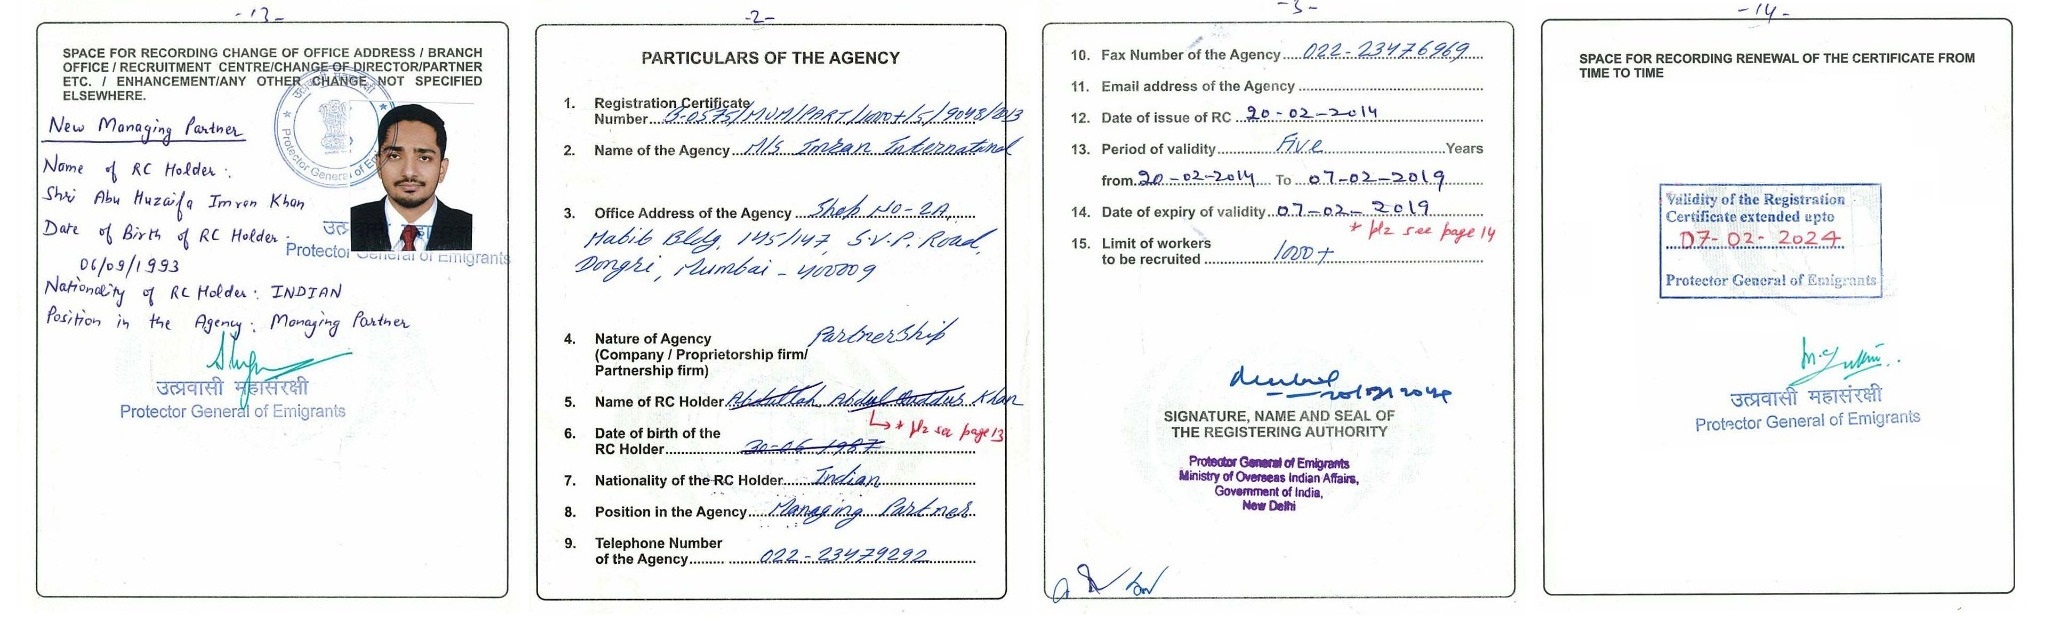 -13-
SPACE FOR RECORDING CHANGE OF OFFICE ADDRESS / BRANCH
OFFICE / RECRUITMENT CENTRE/CHANGE OF DIRECTOR/PARTNER
ETC. / ENHANCEMENT/ANY OTHER CHANGE NOT SPECIFIED
ELSEWHERE.
New Managing Partner
Name of RC Holder :
Shri Abu Huzaifa Imran Khan
Date of Birth of RC Holder :
06/09/1993
Nationality of RC Holder : INDIAN
Position in the Agency : Managing Partner
Protector General of Emigrants
उत्प्रवासी महासंरक्षी
Protector General of Emigrants
-2-
PARTICULARS OF THE AGENCY
1. Registration Certificate
Number B-0575/MUM/PART/1000+/5/9048/2013
2. Name of the Agency M/s Imran International
3. Office Address of the Agency Shop No-2A,
Habib Bldg, 145/147 S.V.P. Road,
Dongri, Mumbai - 400009
4. Nature of Agency Partnership
(Company / Proprietorship firm/
Partnership firm)
5. Name of RC Holder Abdullah Abdul Khan
* plz see page 13
6. Date of birth of the
RC Holder 30-06-1987
7. Nationality of the RC Holder Indian
8. Position in the Agency Managing Partner
9. Telephone Number
of the Agency 022-23479292
-3-
10. Fax Number of the Agency 022-23476969
11. Email address of the Agency
12. Date of issue of RC 20-02-2014
13. Period of validity Five Years
from 20-02-2014 To 07-02-2019
14. Date of expiry of validity 07-02-2019
* plz see page 14
15. Limit of workers
to be recruited 1000+
SIGNATURE, NAME AND SEAL OF
THE REGISTERING AUTHORITY
Protector General of Emigrants
Ministry of Overseas Indian Affairs,
Government of India,
New Delhi
-14-
SPACE FOR RECORDING RENEWAL OF THE CERTIFICATE FROM
TIME TO TIME
Validity of the Registration
Certificate extended upto
07-02-2024
Protector General of Emigrants
उत्प्रवासी महासंरक्षी
Protector General of Emigrants